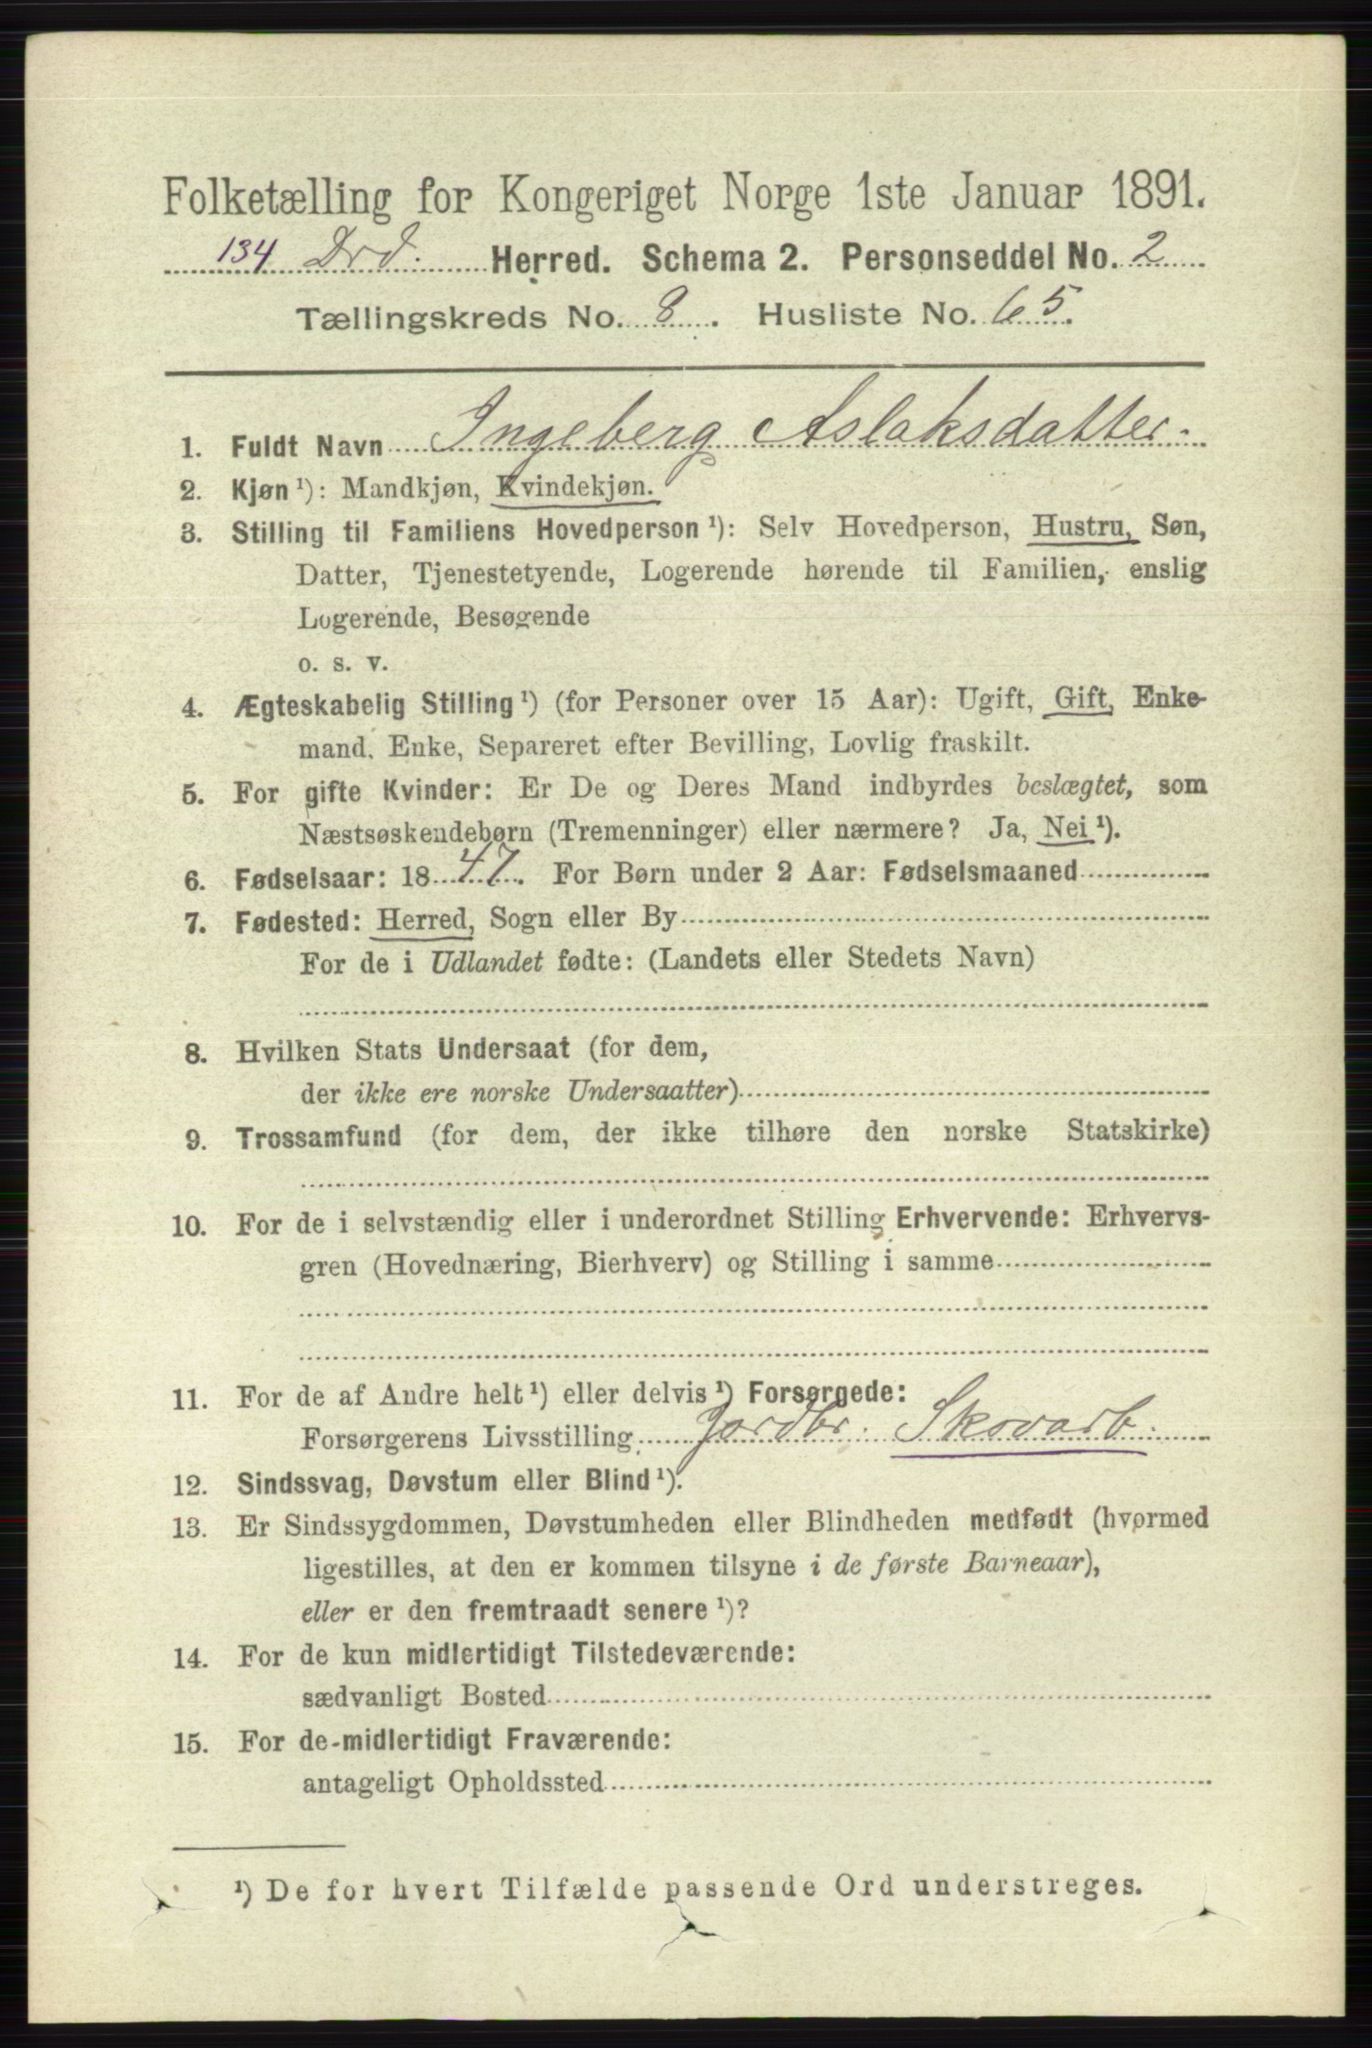 Folketælling for Kongeriget Norge 1ste Januar 1891.
134 Drd. Herred. Schema 2. Personseddel No. 2
Tællingskreds No. 8. Husliste No. 65.
1. Fuldt Navn Ingeberg Aslaksdatter.
2. Kjøn ¹): Mandkjøn, Kvindekjøn.
3. Stilling til Familiens Hovedperson ¹): Selv Hovedperson, Hustru, Søn,
Datter, Tjenestetyende, Logerende hørende til Familien, enslig
Logerende, Besøgende
o. s. v.
4. Ægteskabelig Stilling ¹) (for Personer over 15 Aar): Ugift, Gift, Enke-
mand, Enke, Separeret efter Bevilling, Lovlig fraskilt.
5. For gifte Kvinder: Er De og Deres Mand indbyrdes beslægtet, som
Næstsøskendebørn (Tremenninger) eller nærmere? Ja, Nei ¹).
6. Fødselsaar: 1847. For Børn under 2 Aar: Fødselsmaaned
7. Fødested: Herred, Sogn eller By
For de i Udlandet fødte: (Landets eller Stedets Navn)
8. Hvilken Stats Undersaat (for dem,
der ikke ere norske Undersaatter)
9. Trossamfund (for dem, der ikke tilhøre den norske Statskirke)
10. For de i selvstændig eller i underordnet Stilling Erhvervende: Erhvervs-
gren (Hovednæring, Bierhverv) og Stilling i samme
11. For de af Andre helt ¹) eller delvis ¹) Forsørgede:
Forsørgerens Livsstilling Jordbr. Skovarb.
12. Sindssvag, Døvstum eller Blind ¹).
13. Er Sindssygdommen, Døvstumheden eller Blindheden medfødt (hvormed
ligestilles, at den er kommen tilsyne i de første Barneaar),
eller er den fremtraadt senere ¹)?
14. For de kun midlertidigt Tilstedeværende:
sædvanligt Bosted
15. For de midlertidigt Fraværende:
antageligt Opholdssted
¹) De for hvert Tilfælde passende Ord understreges.